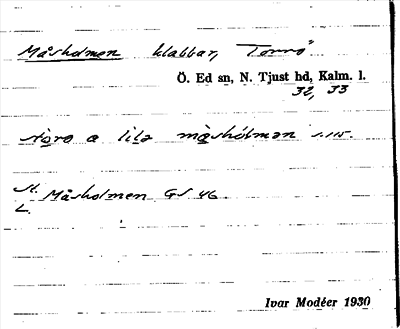 Måsholmen klabbar, Torrö
Ö. Ed sn, N. Tjust hd, Kalm. l.
32, 33
stora o lila måshòlman s. 115.
St. Måsholmen GS 46.
L.
Ivar Modéer 1930